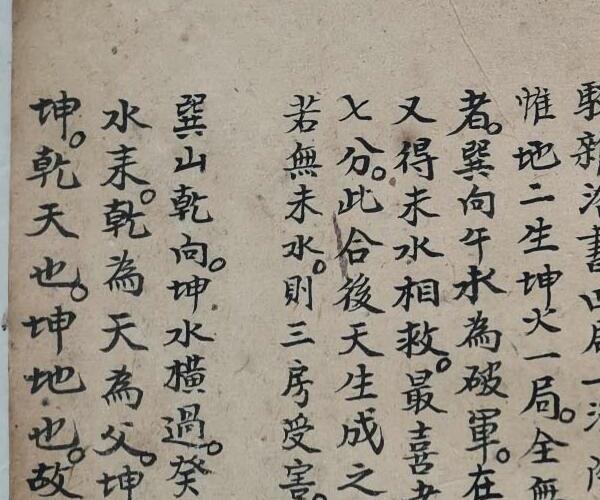 雜洛書四局一
惟地二生坤火一局。全無
者。巽向午水為破軍。在
又得未水相救。最喜者
七八分。此合後天生成之
若無未水。則三房受害。
巽山乾向。坤水橫過。癸
水来。乾為天為父。坤
坤。乾天也。坤地也。故